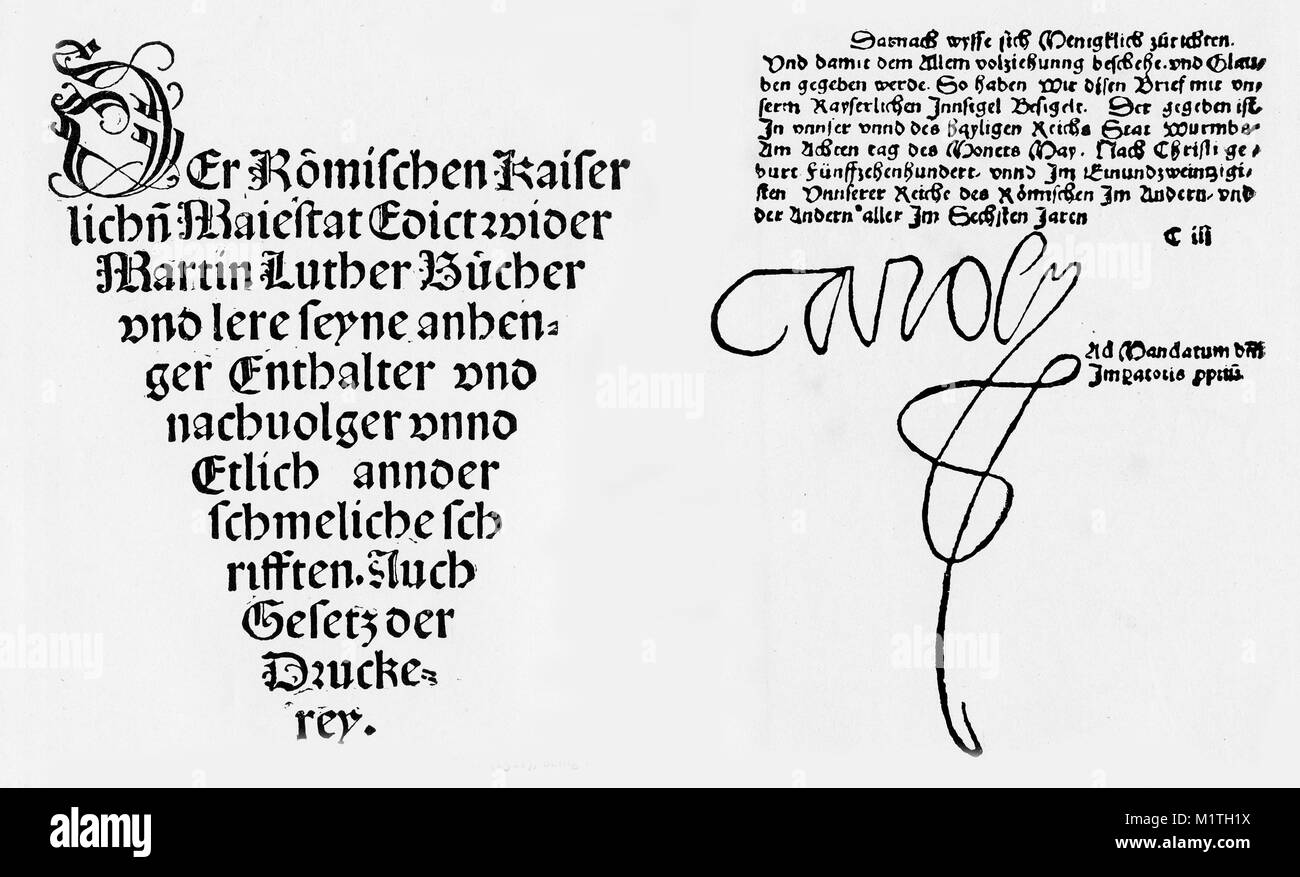 DEr Rômischen Kaiser
lichñ Maiestat Edict wider
Martin Luther Bůcher
vnd lere seyne anhen-
ger Enthalter vnd
nachuolger vnnd
Etlich annder
schmeliche sch
rifften. Auch
Gesetz der
Drucke-
rey.
Darnach wysse sich Menigklich zůrichten.
Vnd damit dem Allem volziehunng beschehe. vnd Glau-
ben gegeben werde. So haben Wir disen Brief mit vn-
serm Kayserlichen Innsigel Besigelt. Der gegeben ist
In vnnser vnnd des hayligen Reichs Stat Wurmbs
Am Achten tag des Monets May. Nach Christi ge-
burt Fünffzehenhundert. vnnd Im Einundzweintzigi-
sten Vnnserer Reiche des Römischen Im Andern. vnd
der Andern aller Im Sechsten Jaren
C iii
Carolus
Ad Mandatum dñi
Imperatoris ppriũ.
alamy
alamy
alamy
alamy
Image ID: M1TH1X
www.alamy.com